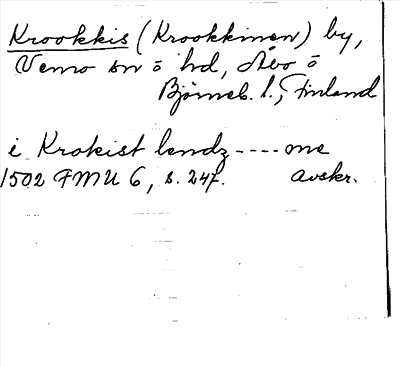 Krookkis (Krookkinen) by,
Vemo sn o hd, Åbo o
Björneb. l., Finland
i Krokist lendz ---- one
1502 FMU 6, s. 247. avskr.